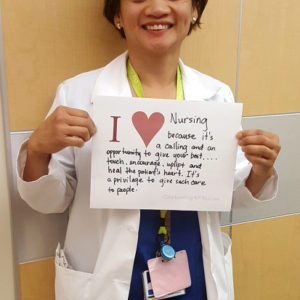 I ♥ Nursing
because it's
a calling and an
opportunity to give your best....
touch, encourage, uplift and
heal the patient's heart. It's
a privilege to give such care
to people.